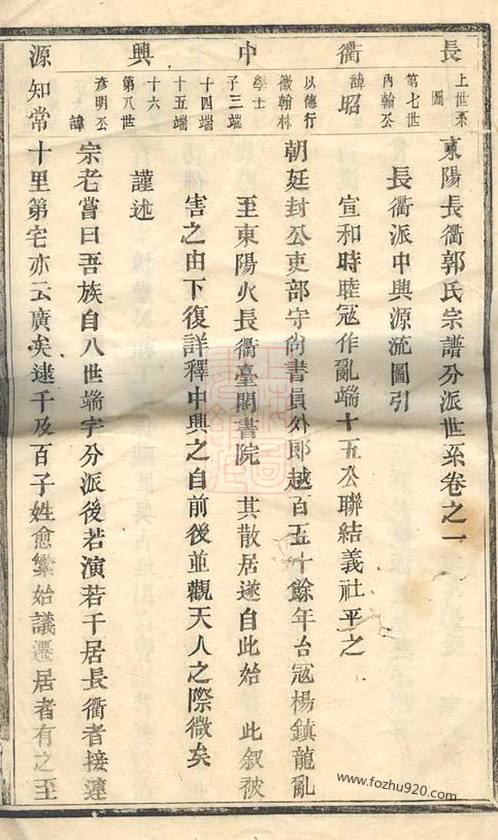 長衢中興源
上世系
圖
第七世
內翰公
諱昭
以德行
徵翰林
學士
子三端
十四端
十五端
十六
第八世
彥明公
諱
知常
東陽長衢郭氏宗譜分派世系卷之一
長衢派中興源流圖引
宣和時睦寇作亂端十五公聯結義社平之
朝廷封公吏部守尚書員外郎越百五十餘年台寇楊鎮龍亂
至東陽火長衢臺閣書院 其散居遂自此始 此叙被
害之由下復詳釋中興之自前後並觀天人之際微矣
謹述
宗老嘗曰吾族自八世端字分派後若演若千居長衢者接連
十里第宅亦云廣矣逮千及百子姓愈繁始議遷居者有之至
www.fozhu920.com